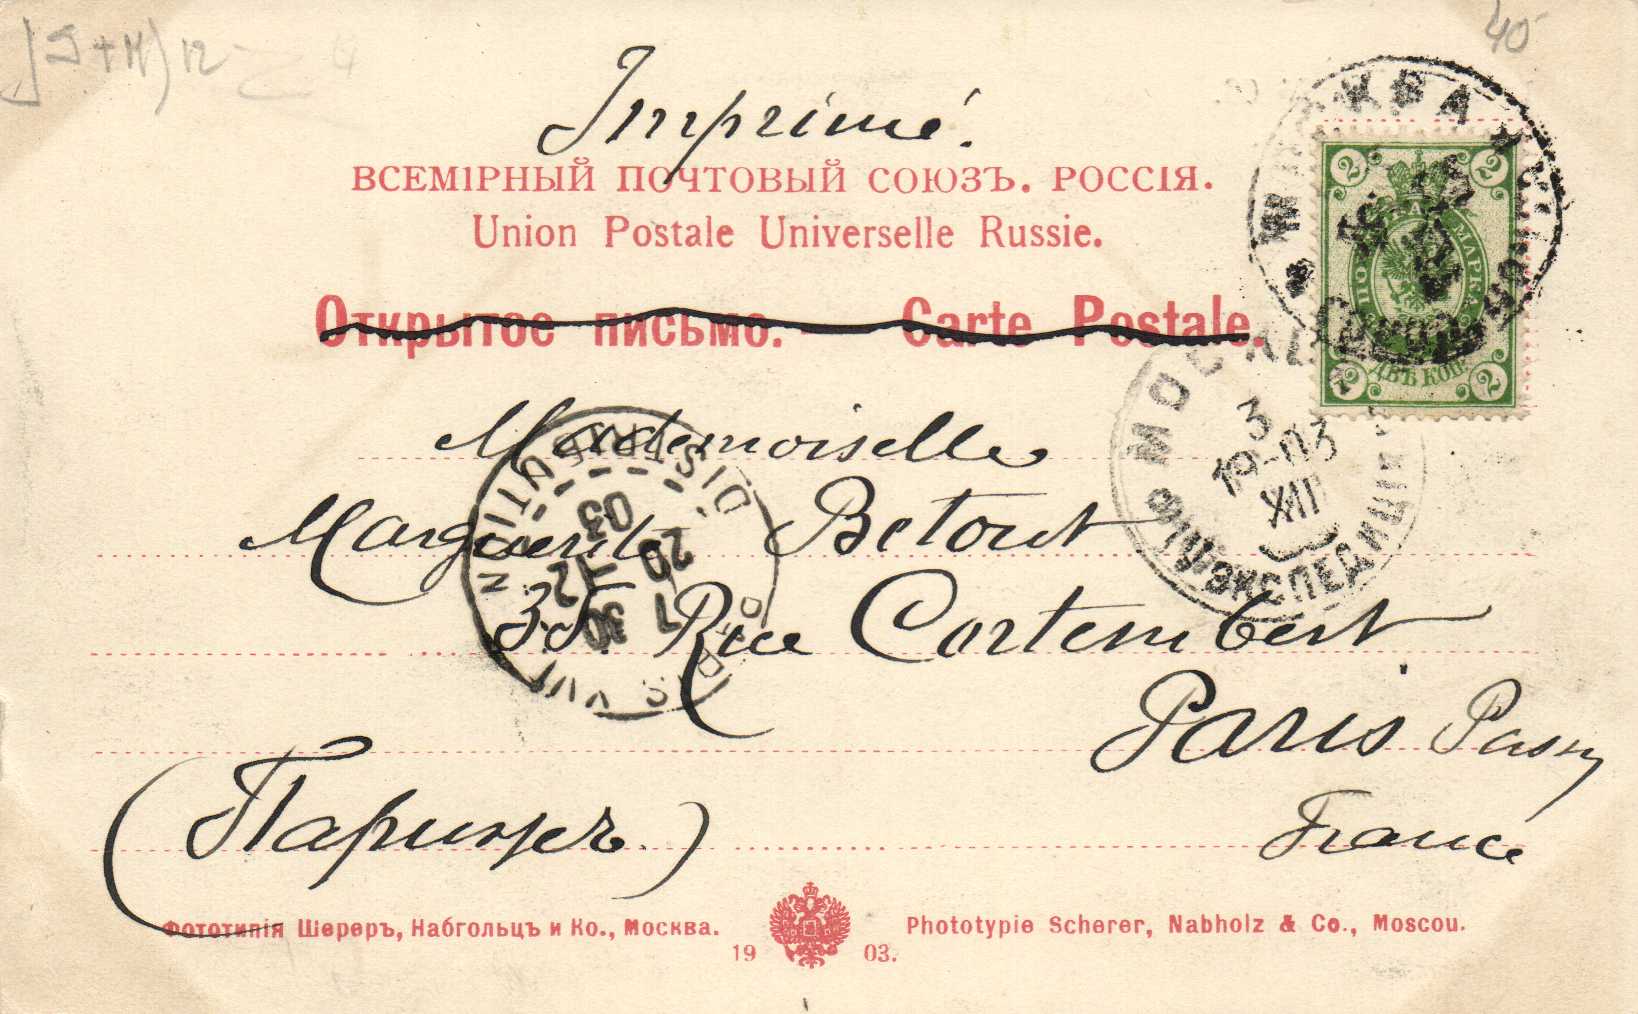 40
Imprimé.
ВСЕМІРНЫЙ ПОЧТОВЫЙ СОЮЗЪ. РОССІЯ.
Union Postale Universelle Russie.
Открытое письмо. — Carte Postale.
2 2
МАРКА
ДВѢ КОП.
2 2
МОСКВА
МОСКВА
3
19-03
XII
ЭКСПЕДИЦІЯ
Mademoiselle
Marguerite Betout
35. Rue Cortembert
Paris Passy
(Парижъ.) France
DISTRIBUTION
7 30
20 -12
03
Фототипія Шереръ, Набгольцъ и Ко., Москва.
1903.
Phototypie Scherer, Nabholz & Co., Moscou.